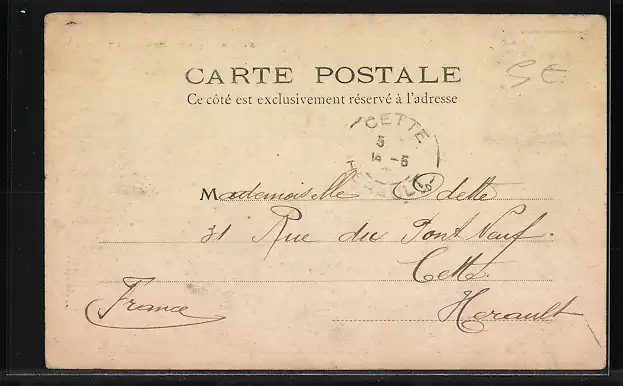 CARTE POSTALE
Ce côté est exclusivement réservé à l'adresse
CETTE
5
14 - 5
HERAULT
Mademoiselle Odette
31 Rue du Pont Neuf.
Cette
France
Herault